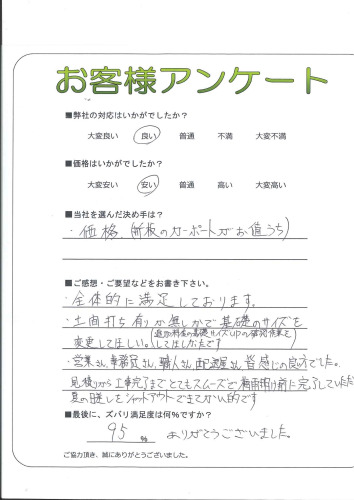 お客様アンケート
■弊社の対応はいかがでしたか?
大変良い 良い 普通 不満 大変不満
■価格はいかがでしたか?
大変安い 安い 普通 高い 大変高い
■当社を選んだ決め手は?
・価格(折板のカーポートがお値うち)
■ご感想・ご要望などをお書き下さい。
・全体的に満足しております。
・土間打ち有りか無しかで基礎のサイズを
(追加料金の基礎サイズUPの
変更してほしい。してほしかったです
・営業さん、事務さん、職人さん、配送屋さん皆感じの良い方でした。
見積りから工事完了までとてもスムーズで梅雨明け前に完了していただ
夏の日差しをシャットアウトできてかい的です
■最後に、ズバリ満足度は何%ですか?
95 % ありがとうございました。
ご協力頂き、誠にありがとうございました。